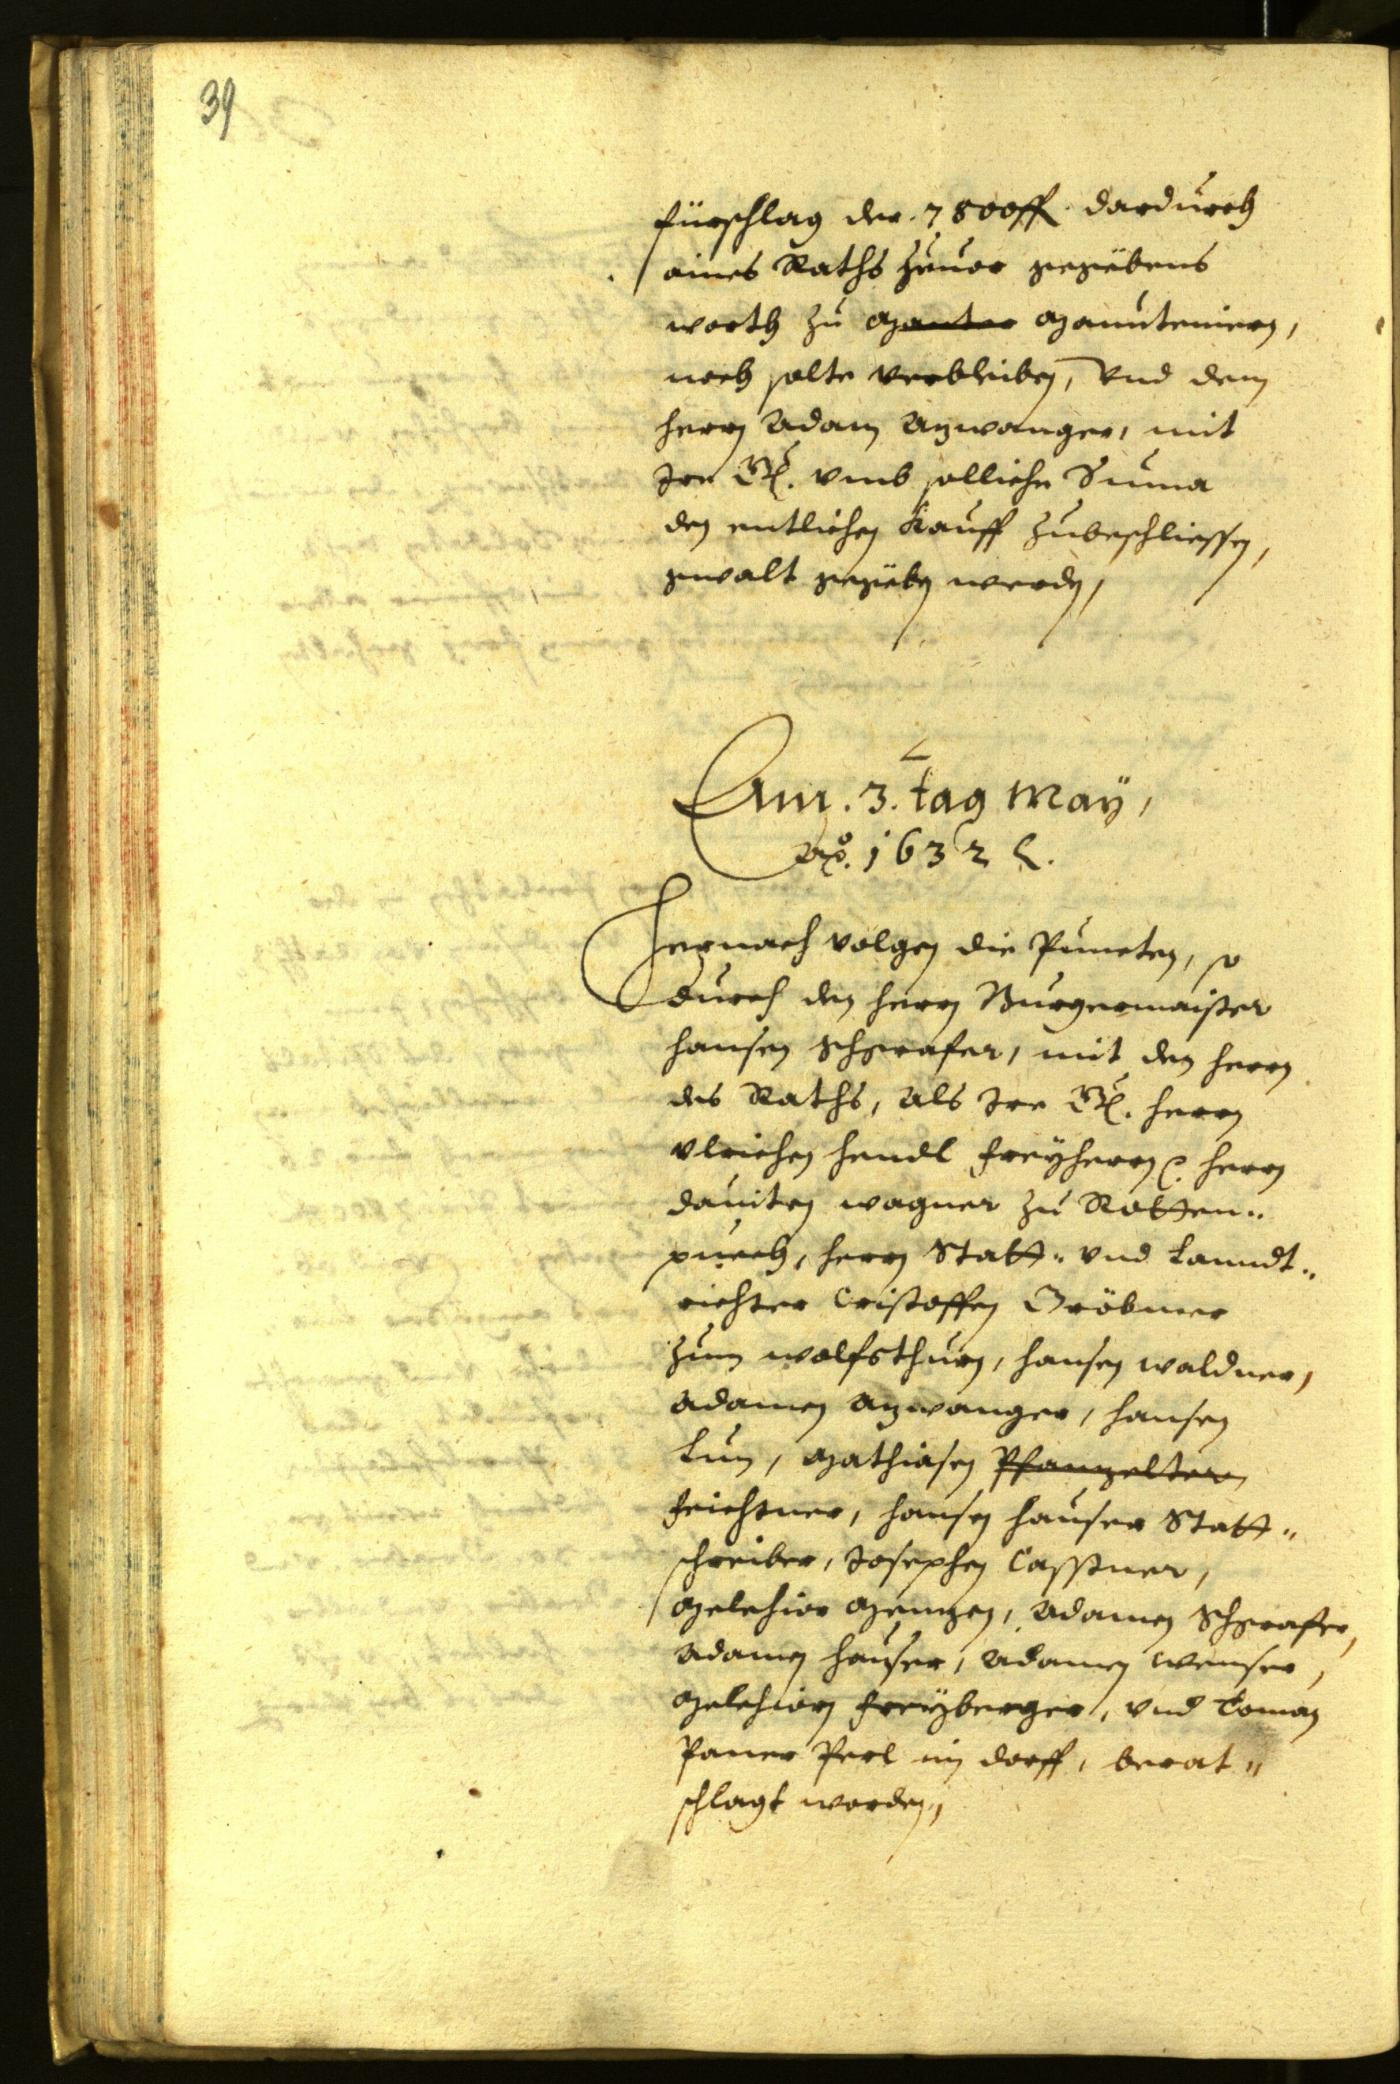 39
fürschlag der 7800 fl. dardurch
aines Raths zuuor gegebens
worth zu manuteniern,
noch solte verbleiben, vnd dem
herrn Adam Anzwanger, mit
Ire Gn. vmb solliche Suma
den entlichen Kauff zubeschliessen,
gwalt gegeben werden,
Am. 3. tag May,
Ao. 1632
Hernach volgen die Puncten, so
durch den herrn Burgermaister
hansen Schgrafer, mit den herrn
des Raths, als Ire Gn. herrn
Vlrichen hendl freyherrn herrn
Dauiten wagner zu Rotten„
puech, herrn Statt„ vnd Lanndt„
richter Cristoffen Gröbmer
zum wolfsthurn, hansen waldner,
Adamen Anzwanger, hansen
Lun, Mathiasen Pfanzeltern
feichtner, hansen hauser Statt„
schreiber, Josephen Casstner,
Melchior Menzen, Adamen Schgrafer,
Adamen hauser, Adamen wenser,
Melchiorn freyberger, vnd Toman
Paner Perl im dorff, berat„
schlagt worden,